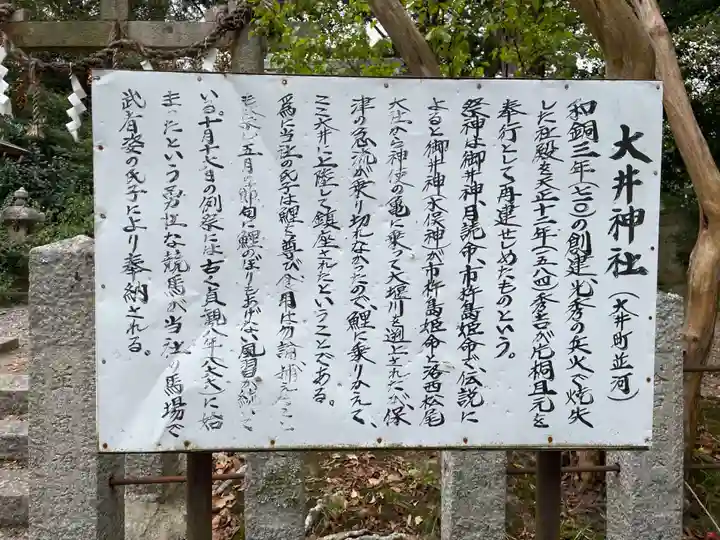 大井神社（大井町並河）
和銅三年（七一〇）の創建、光秀の兵火で焼失
した社殿を天正十二年（一五八四）秀吉が片桐且元を
奉行として再建せしめたものという。
祭神は御井神、月読命、市杵島姫命で、伝説に
よると御井神（木俣神）が市杵島姫命と洛西松尾
大社から神使の亀に乗って大堰川を遡上されたが、保
津の急流が乗り切れなかったので、鯉に乗りかえて、
ここ大井に上陸して鎮座されたということである。
為に当社の氏子は鯉を尊び食用は勿論捕えること
五月節句に鯉のぼりもあげない風習が続いて
いる。十月十七日の例祭には古く貞観八年（八六六）に始
まったという勇壮な競馬が当社の馬場で
武者姿の氏子により奉納される。